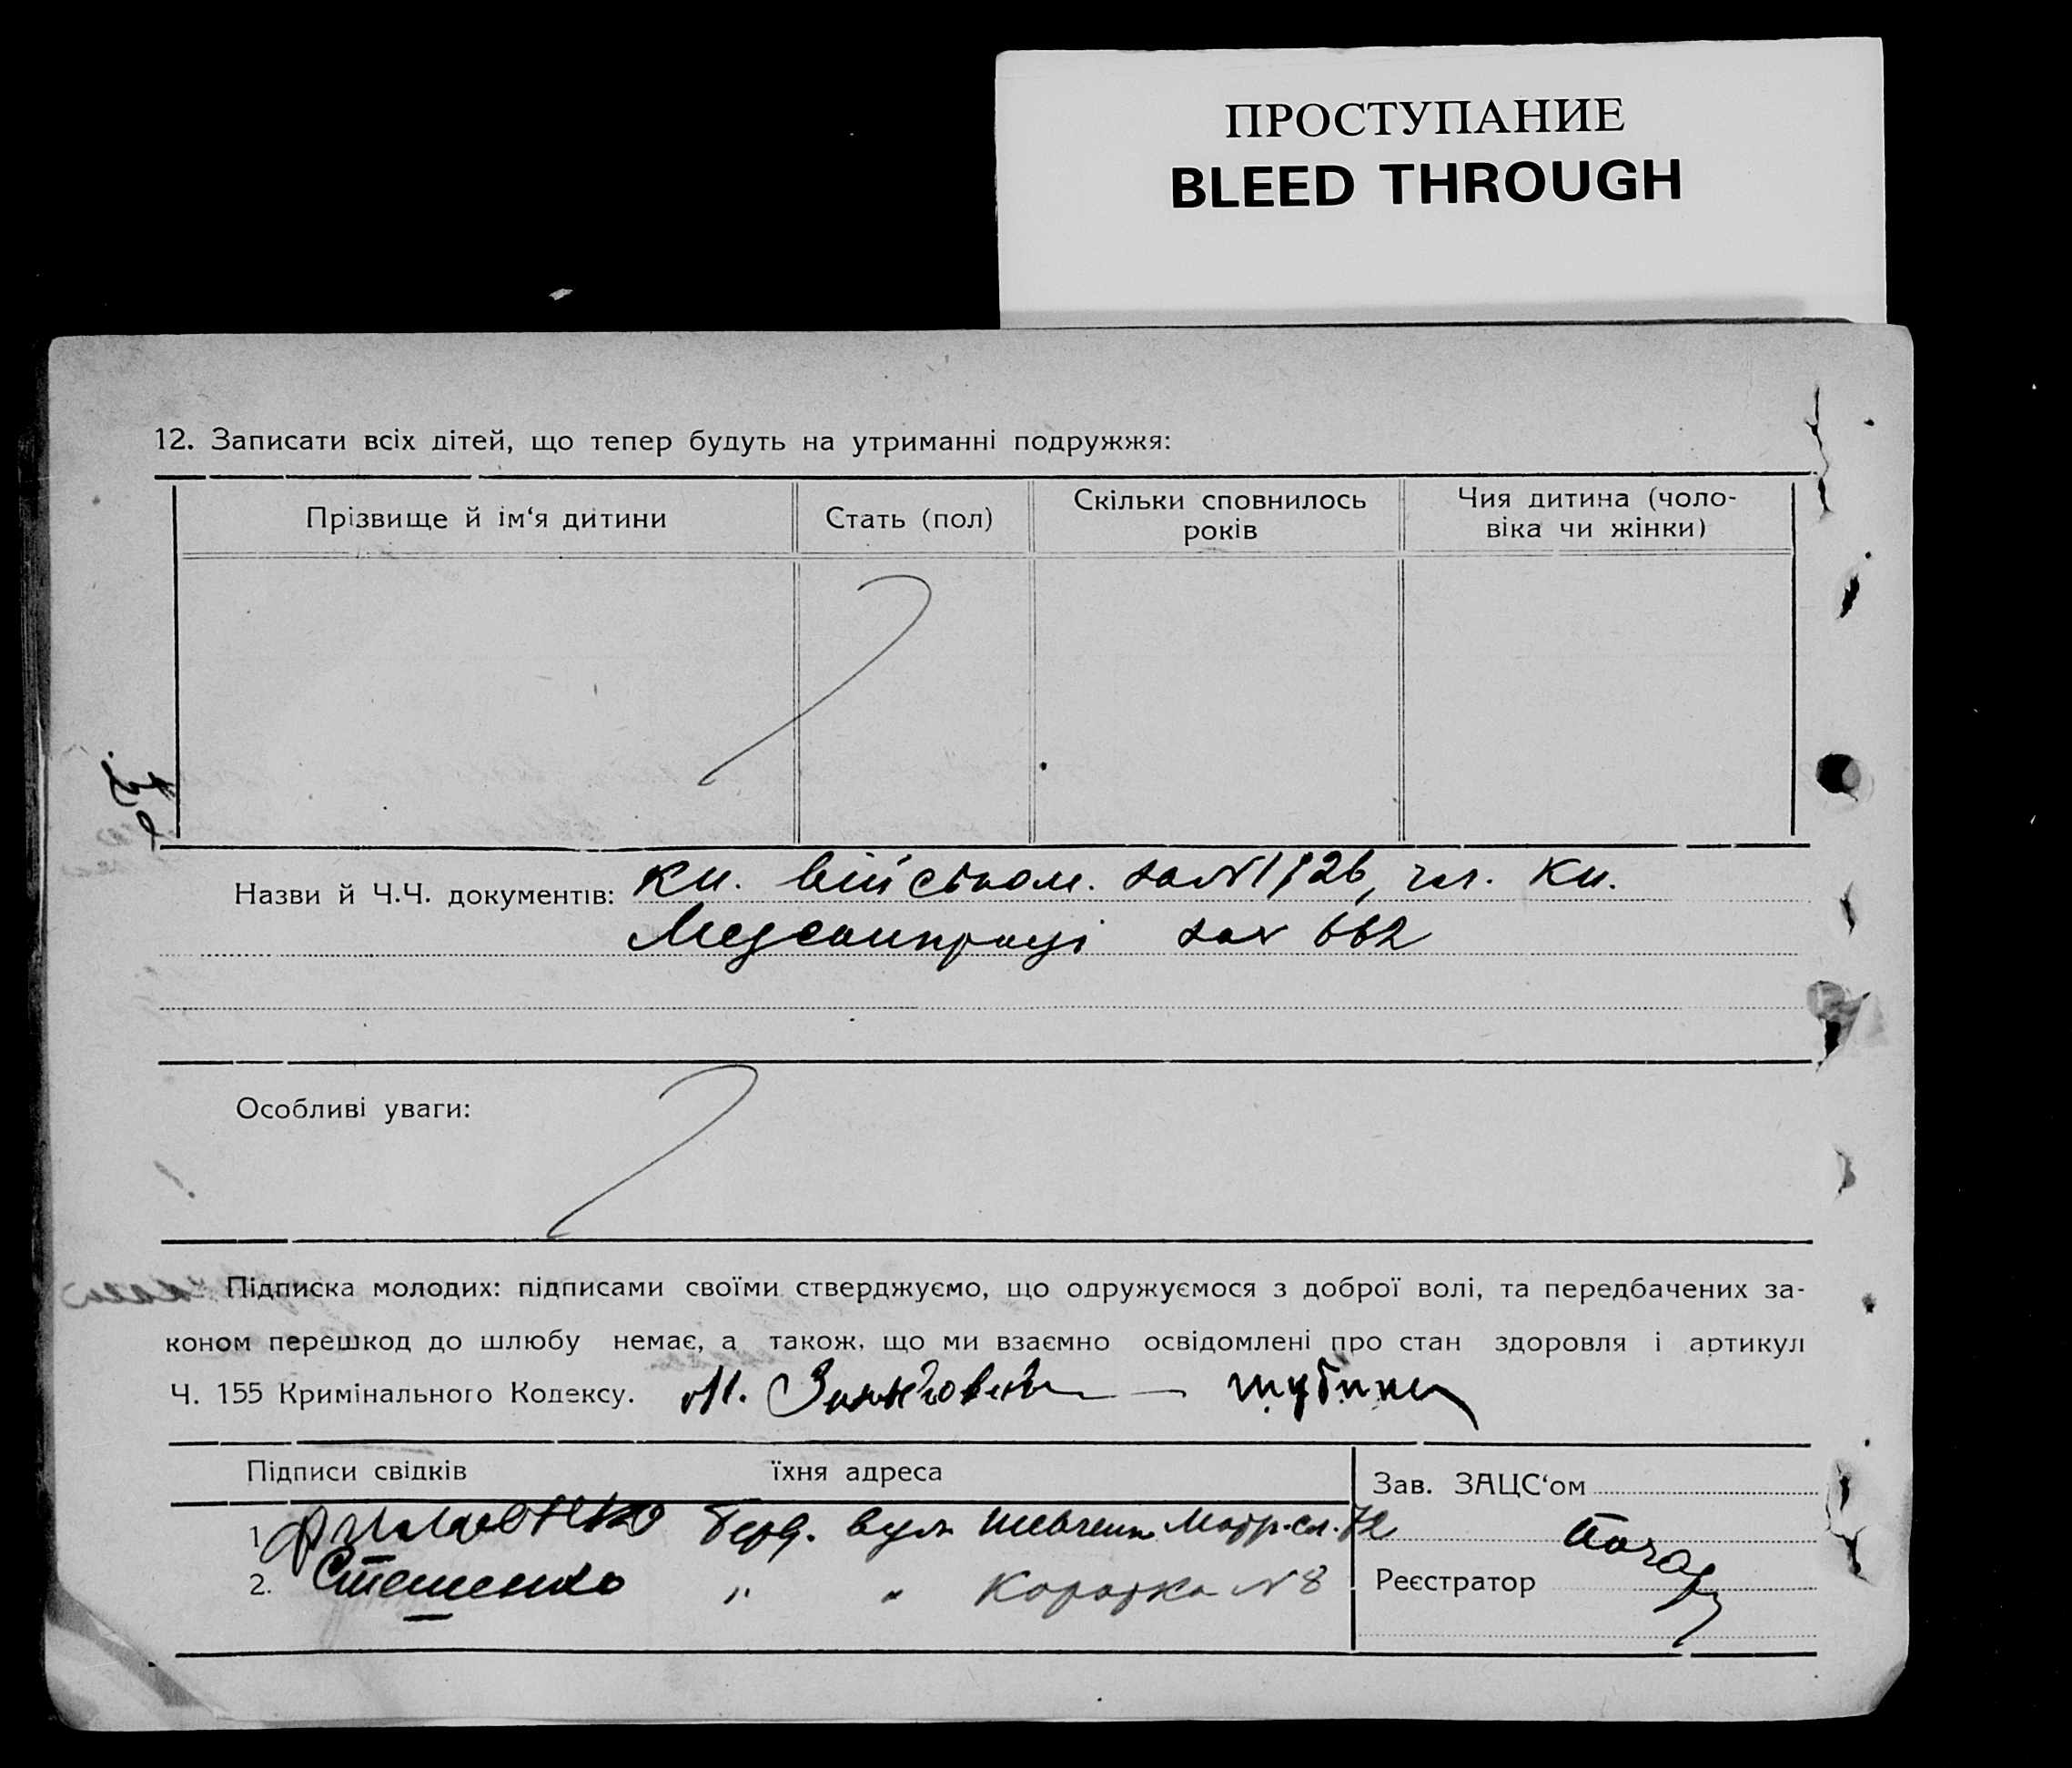 ПРОСТУПАНИЕ
BLEED THROUGH
12. Записати всіх дітей, що тепер будуть на утриманні подружжя:
Прізвище й ім‘я дитини
Стать (пол)
Скільки сповнилось
років
Чия дитина (чоло-
віка чи жінки)
Назви й Ч.Ч. документів: кн. військом. за №1926, чл. кн.
Медсанпраці за № 662
Особливі уваги:
Підписка молодих: підписами своїми стверджуємо, що одружуємося з доброї волі, та передбачених за-
коном перешкод до шлюбу немає, а також, що ми взаємно освідомлені про стан здоровля і артикул
Ч. 155 Кримінального Кодексу. М.
Підписи свідків їхня адреса
Зав. ЗАЦС‘ом
1. вул. 72
2. Стешенко " " Коротка № 8
Реєстратор